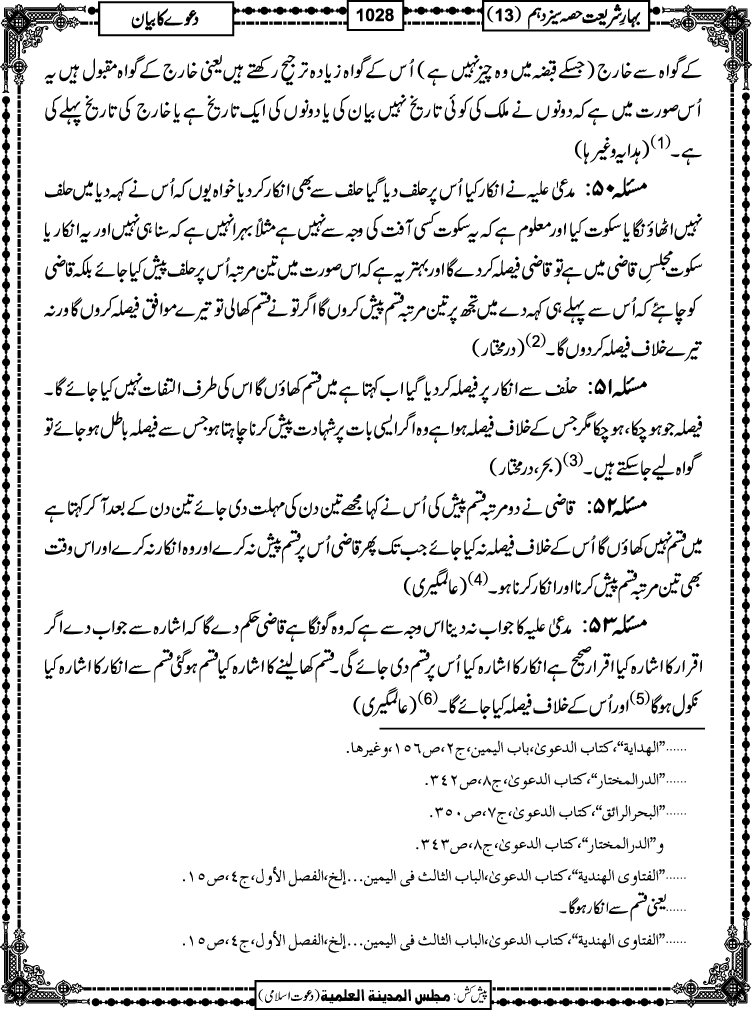 بہارِ شریعت حصہ سیزدہم (13)
1028
دعوے کا بیان
کے گواہ سے خارج (جسکے قبضہ میں وہ چیز نہیں ہے) اُس کے گواہ زیادہ ترجیح رکھتے ہیں یعنی خارج کے گواہ مقبول ہیں یہ
اُس صورت میں ہے کہ دونوں نے ملک کی کوئی تاریخ نہیں بیان کی یا دونوں کی ایک تاریخ ہے یا خارج کی تاریخ پہلے کی
ہے۔(1) (ہدایہ وغیرہا)
مسئلہ ۵۰: مدعیٰ علیہ نے انکار کیا اُس پر حلف دیا گیا حلف سے بھی انکار کر دیا خواہ یوں کہ اُس نے کہہ دیا میں حلف
نہیں اٹھاؤ نگا یا سکوت کیا اور معلوم ہے کہ یہ سکوت کسی آفت کی وجہ سے نہیں ہے مثلاً بہرا نہیں ہے کہ سنا ہی نہیں اور یہ انکار یا
سکوت مجلسِ قاضی میں ہے تو قاضی فیصلہ کر دے گا اور بہتر یہ ہے کہ اس صورت میں تین مرتبہ اُس پر حلف پیش کیا جائے بلکہ قاضی
کو چاہئے کہ اُس سے پہلے ہی کہہ دے میں تجھ پر تین مرتبہ قسم پیش کروں گا اگر تو نے قسم کھالی تو تیرے موافق فیصلہ کروں گا ورنہ
تیرے خلاف فیصلہ کر دوں گا۔(2) (درمختار)
مسئلہ ۵۱: حلْف سے انکار پر فیصلہ کر دیا گیا اب کہتا ہے میں قسم کھاؤں گا اس کی طرف التفات نہیں کیا جائے گا۔
فیصلہ جو ہو چکا، ہو چکا مگر جس کے خلاف فیصلہ ہوا ہے وہ اگر ایسی بات پر شہادت پیش کرنا چاہتا ہو جس سے فیصلہ باطل ہو جائے تو
گواہ لیے جا سکتے ہیں۔(3) (بحر، درمختار)
مسئلہ ۵۲: قاضی نے دو مرتبہ قسم پیش کی اُس نے کہا مجھے تین دن کی مہلت دی جائے تین دن کے بعد آ کر کہتا ہے
میں قسم نہیں کھاؤں گا اُس کے خلاف فیصلہ نہ کیا جائے جب تک پھر قاضی اُس پر قسم پیش نہ کرے اور وہ انکار نہ کرے اور اس وقت
بھی تین مرتبہ قسم پیش کرنا اور انکار کرنا ہو۔(4) (عالمگیری)
مسئلہ ۵۳: مدعیٰ علیہ کا جواب نہ دینا اس وجہ سے ہے کہ وہ گونگا ہے قاضی حکم دے گا کہ اشارہ سے جواب دے اگر
اقرار کا اشارہ کیا اقرار صحیح ہے انکار کا اشارہ کیا اُس پر قسم دی جائے گی۔ قسم کھا لینے کا اشارہ کیا قسم ہوگئی قسم سے انکار کا اشارہ کیا
نکول ہوگا(5) اور اُس کے خلاف فیصلہ کیا جائے گا۔(6) (عالمگیری)
......”الھدایة“، کتاب الدعویٰ، باب الیمین، ج۲، ص۱۵۶، وغیرھا.
......”الدرالمختار“، کتاب الدعویٰ، ج۸، ص۳۴۲.
......”البحرالرائق“، کتاب الدعویٰ، ج۷، ص۳۵۰.
و”الدرالمختار“، کتاب الدعویٰ، ج۸، ص۳۴۳.
......”الفتاوی الھندیة“، کتاب الدعویٰ، الباب الثالث فی الیمین...إلخ، الفصل الأول، ج۴، ص۱۵.
......یعنی قسم سے انکار ہوگا۔
......”الفتاوی الھندیة“، کتاب الدعویٰ، الباب الثالث فی الیمین...إلخ، الفصل الأول، ج۴، ص۱۵.
پیش کش: مجلس المدینة العلمیة (دعوت اسلامی)